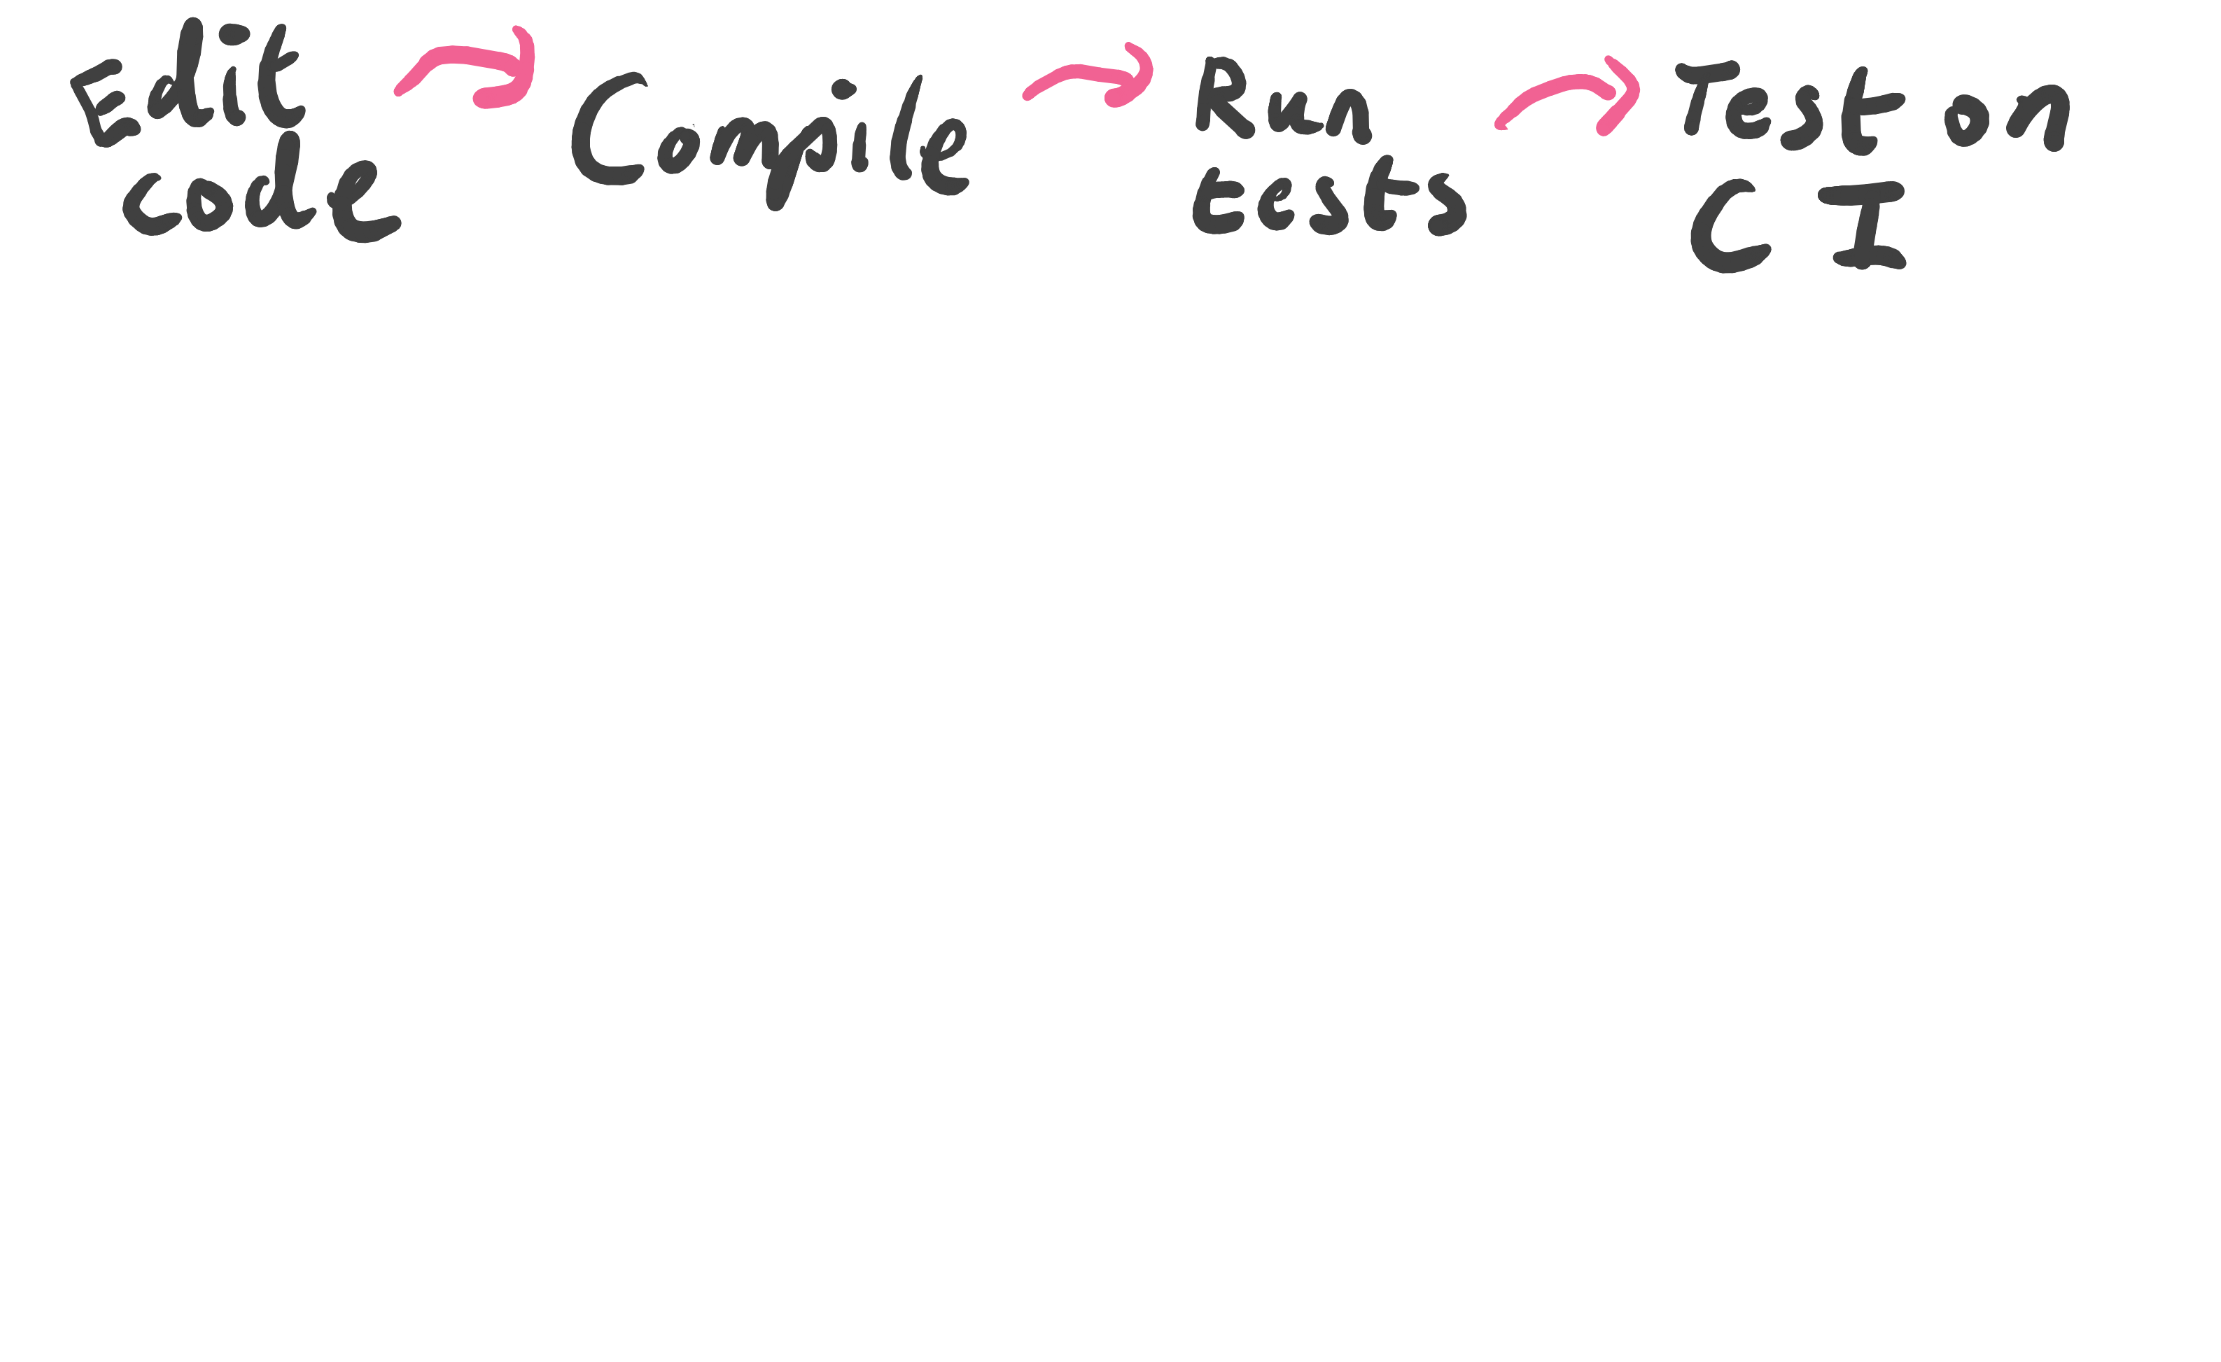 Edit
code
Compile
Run
tests
Test on
CI